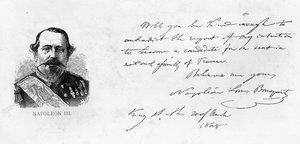 Will you be kind enough to
contradict the report of my intention
to become a candidate for the seat in
national assembly of France
Believe me yours
Napoleon Louis Bonaparte
King St
1848
NAPOLEON III.